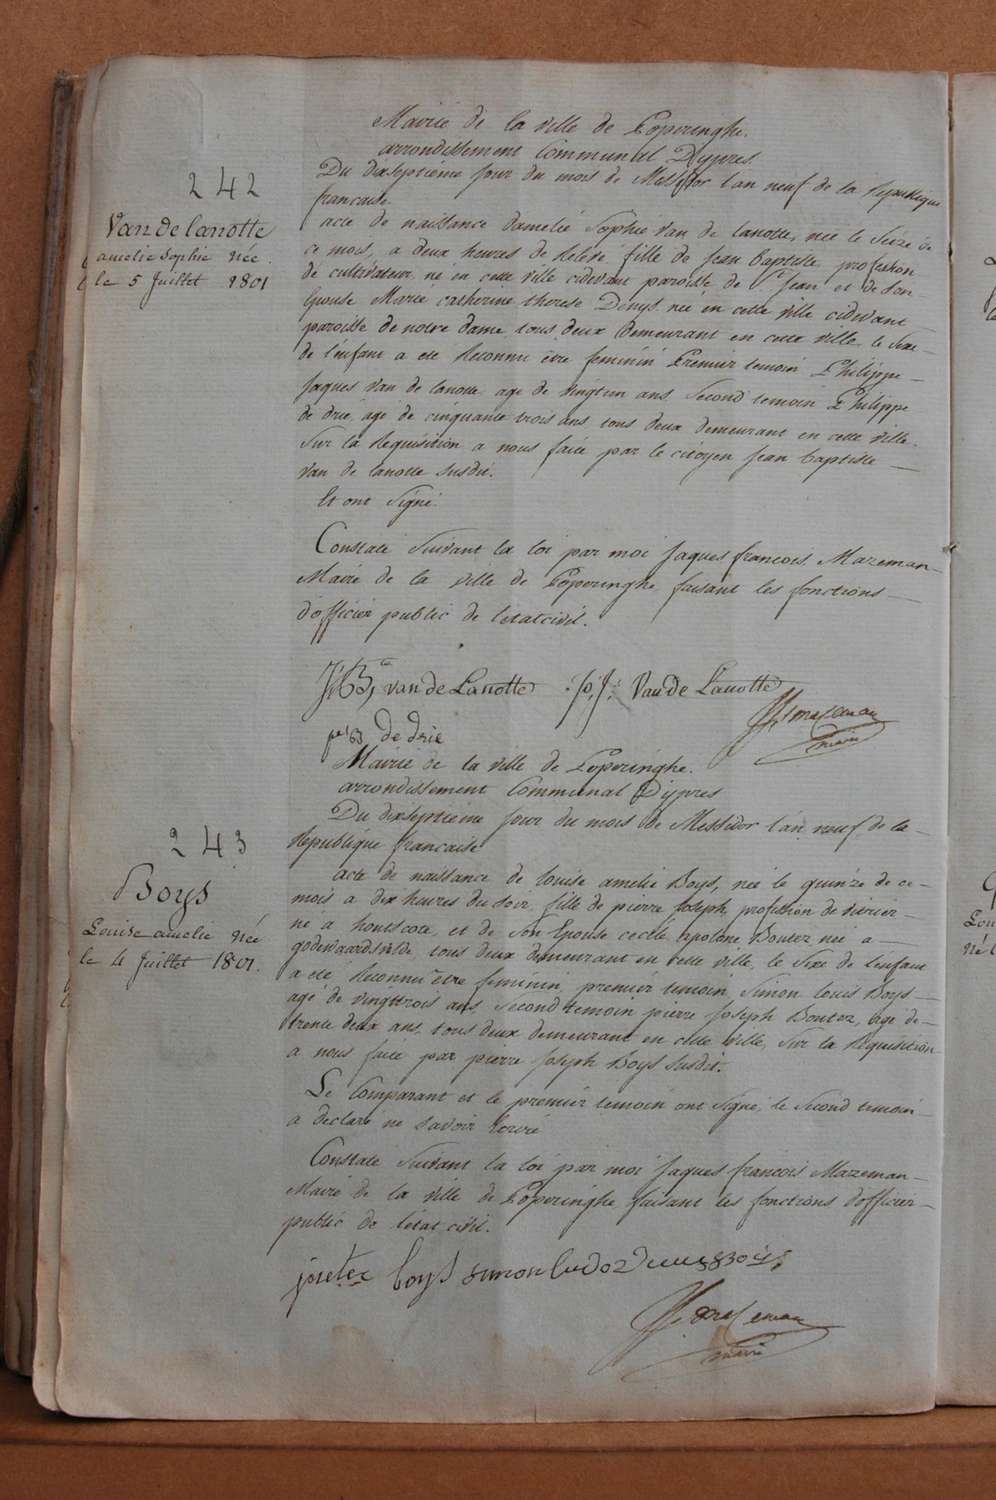 Mairie de la ville de Poperinghe.
arrondissement Communal Dypres
Du dixseptieme jour du mois de Messidor l'an neuf de la Republique
francaise
242
Van de lanotte
amelie Sophie née
le 5 Juillet 1801
acte de naissance damelie Sophie Van de lanotte, née le Seize de
ce mois, a deux heures de Relevé fille de Jean baptiste profession
de cultivateur né en cette ville cidevant paroisse de St Jean et de Son
Epouse Marie catherine therese Denys née en cette ville cidevant
paroisse de notre dame, tous deux demeurant en cette ville, le Sexe
de l'enfant a eté Reconnu être feminin Premier temoin Philippe
Jaques Van de lanotte, agé de vingtun ans, Second temoin Philippe
de drie, agé de cinquante trois ans tous deux demeurant en cette ville.
Sur la Requisition a nous faite par le citoyen Jean baptiste
Van de lanotte susdit.
Et ont Signé.
Constaté Suivant la loi par moi Jaques francois Mazeman
Maire de la ville de Poperinghe faisant les fonctions
d'officier public de letat civil.
van de Lanotte P: J: Van de Lanotte
de drie
Mazeman
maire
Mairie de la ville de Poperinghe.
arrondissement Communal D'ypres
Du dixseptieme jour du mois de Messidor l'an neuf de la
Republique francaise
243
Boys
Louise amelie née
le 4 Juillet 1801.
acte de naissance de louise amelie Boys, née le quinze de ce
mois a dix heures du soir, fille de pierre Joseph, profession de
né a hontscote, et de Son Epouse cecile apolone Boutez née a
godewaardsvelde, tous deux demeurant en cette ville, le Sexe de l'enfant
a eté Reconnu être feminin, premier temoin, Simon louis Boys
agé de vingttrois ans, Second temoin pierre Joseph Boutez, agé de
trente deux ans, tous deux demeurant en cette ville, Sur la Requisition
a nous faite par pierre Joseph Boys Susdit.
Le Comparant et le premier temoin ont signé, le Second temoin
a declaré ne savoir Ecrire
Constaté Suivant la loi par moi Jaques francois Mazeman
Maire de la ville de Poperinghe faisant les fonctions d'officier
public de l'état civil.
boys simon
Mazeman
maire